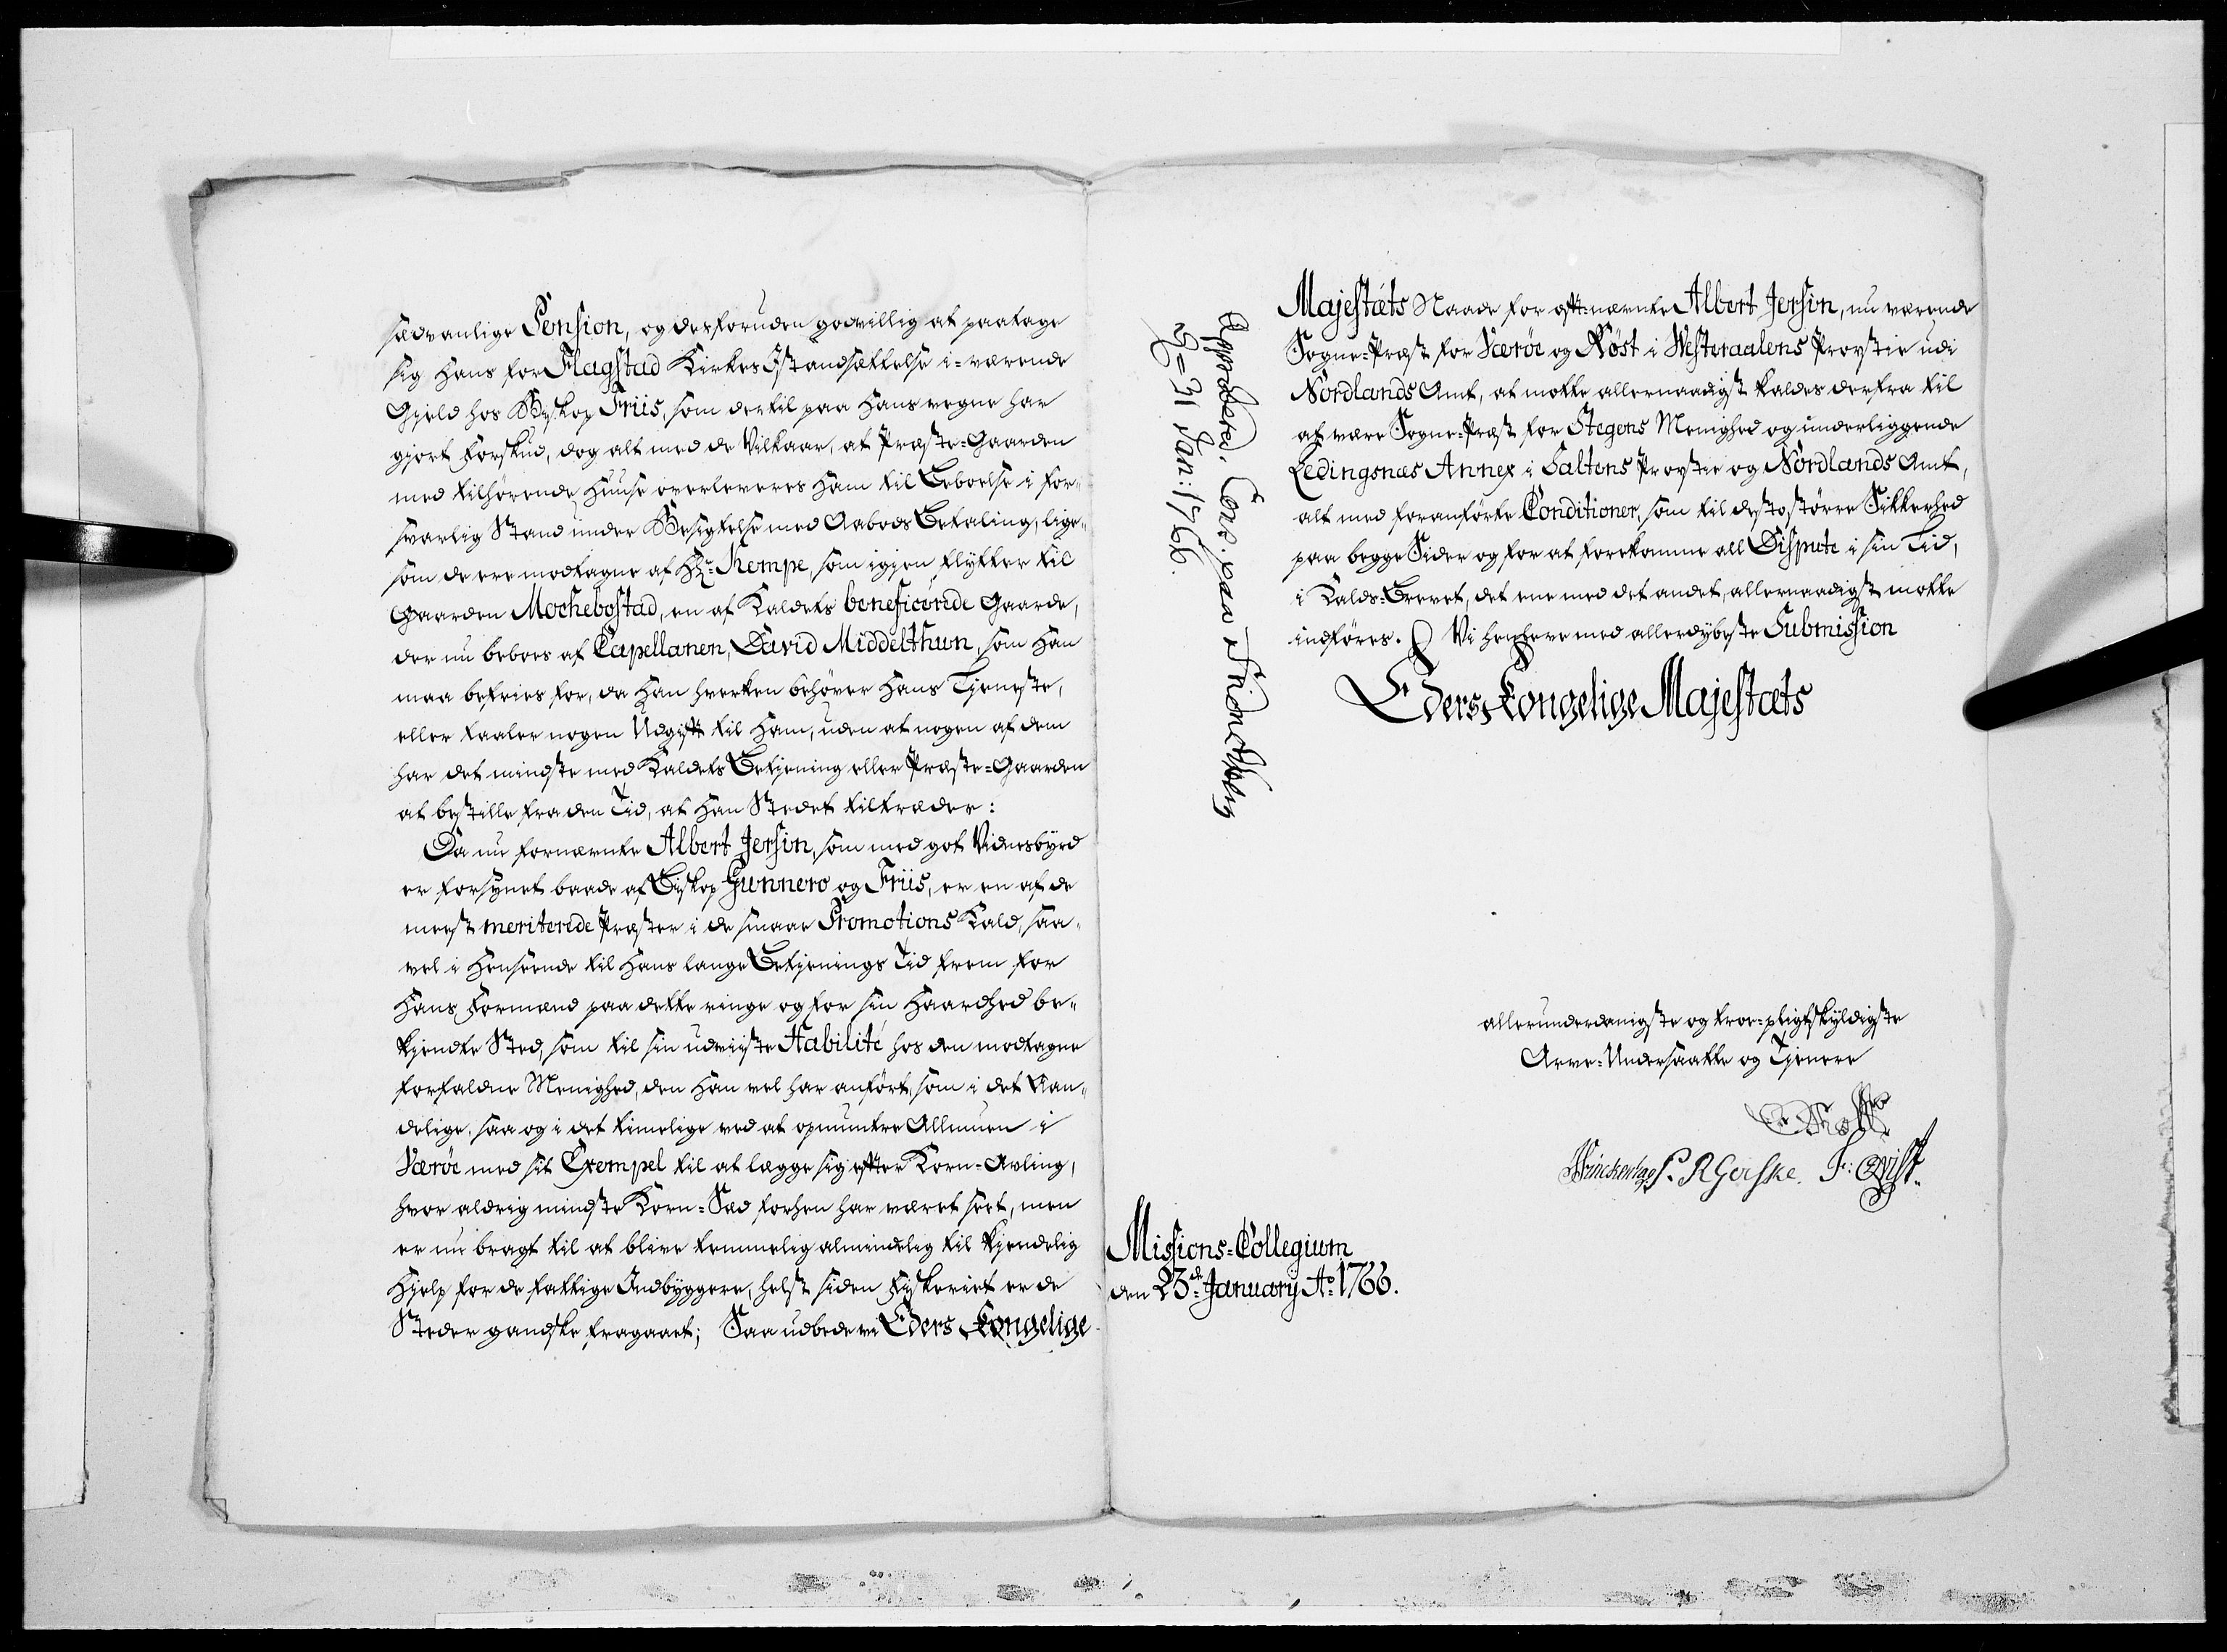 sædvanlige Pension, og desforuden godvillig at paatage
sig hans for Flagstad Kirkes Istandsættelse i-værende
Gjeld hos Biskop Friis, som dertil paa hans vegne har
gjort Forskud, dog alt med de Vilkaar, at Præste-Gaarden
med tilhörende Huuse overleveres ham til Beboelse i for-
svarlig Stand under Besigtelse med Aabods Betaling, lige-
som de ere modtagne af Hr. Kempe, som igjen flytter til
Gaarden Mochebostad, en af Kaldets beneficerede Gaarde,
der nu beboes af Capellanen, David Middelthun, som han
maa befries for, da han hverken behöver hans Tjeneste,
eller taaler nogen Udgift til ham, uden at nogen af dem
har det mindste med Kaldets Betjening eller Præste-Gaarden
at bestille fra den Tid, at han Stedet tiltræder:
Da nu fornævnte Albert Jersin, som med got Vidnesbyrd
er forsynet baade af Biskop Gunnero og Friis, er en af de
meest meriterede Præster i de smaae Promotions Kald, saa-
vel i Henseende til hans lange Betjenings Tid frem for
hans Formænd paa dette ringe og for sin Haardhed be-
kjendte Sted, som til sin udviiste Habilité hos den modtagne
forfaldne Menighed, den han vel har anfört, som i det Aan-
delige, saa og i det timelige ved at opmuntre Allmuen i
Væröe med sit Exempel til at lægge sig efter Korn-Avling,
hvor aldrig mindste Korn-Sæd forhen har været seet, men
er nu bragt til at blive temmelig almindelig til kjendelig
Hjelp for de fattige Indbyggere, helst siden Fiskeriet er de
Steder gandske fragaaet; Saa udbede vi Eders Kongelige
Approberet. Cons. paa Friderichsberg
d. 31 Jan: 1766.
Majestæts Naade for oftnævnte Albert Jersin, nu værende
Sogne-Præst for Væröe og Röst i Westeraalens Provstie udi
Nordlands Amt, at motte allernaadigst kaldes derfra til
at være Sogne-Præst for Stegens Menighed og underliggende
Ledingsnæs Annex i Saltens Provstie og Nordlands Amt,
alt med foranförte Conditioner, som til desto större Sikkerhed
paa begge Sider og for at forekomme all Dispute i sin Tid,
i Kalds-Brevet, det ene med det andet, allernaadigst motte
indföres. Vi henleve med allerdybeste Submission
Eders Kongelige Majestæts
allerunderdanigste og troe-pligtskyldigste
Arve-Undersaatte og Tjenere
F: Qvist
Missions-Collegium
den 23de January Ao 1766.